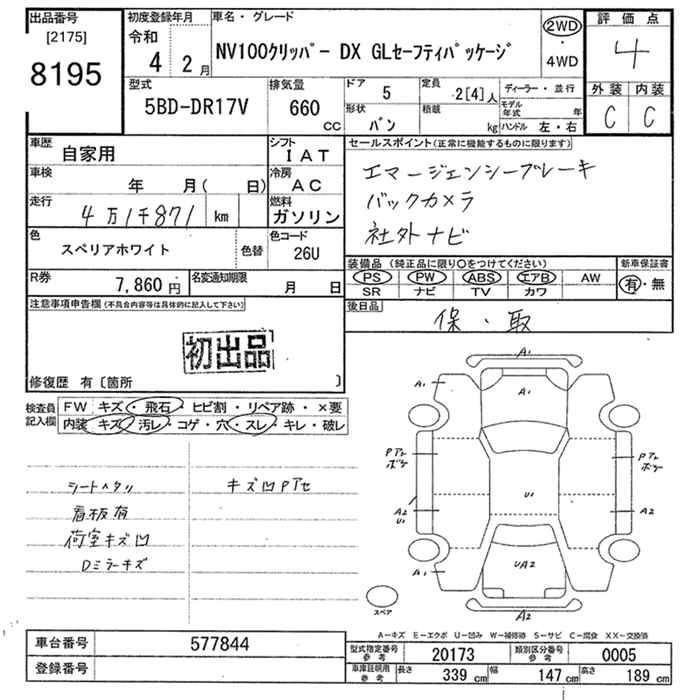 出品番号
[2175]
8195
初度登録年月
令和
4 2月
車名・グレード
NV100クリッパー DX GLセーフティパッケージ
2WD
・
4WD
評価点
4
外装 内装
C C
型式
5BD-DR17V
排気量
660
CC
ドア 5
定員 2[4]人
形状 バン
積載 kg
ディーラー・並行
モデル年式 年
ハンドル 左・右
車歴 自家用
シフト IAT
車検 年 月( 日)
冷房 AC
走行 4万1千871 km
燃料 ガソリン
色 スペリアホワイト
色替
色コード 26U
R券 7,860円
名変通知期限 月 日
セールスポイント(正常に機能するものに限ります)
エマージェンシーブレーキ
バックカメラ
社外ナビ
装備品(純正品に限り○をつけてください)
PS PW ABS エアB AW
SR ナビ TV カワ
新車保証書
有・無
後日品
保・取
注意事項申告欄(不具合内容等は具体的に記入して下さい)
初出品
修復歴 有〔箇所 〕
検査員記入欄
FW キズ・飛石・ヒビ割・リペア跡・×要
内装 キズ・汚レ・コゲ・穴・スレ・キレ・破レ
シートヘタリ
看板有
荷室キズ凹
Dミラーキズ
キズ凹Pアセ
A1
A1
A1
A1
Pアト
ボケ
Pアト
ボケ
U1
A2
U1
A2
UA2
A1
A1
A2
スペア
A―キズ E―エクボ U―凹み W―補修跡 S―サビ C―腐食 XX―交換済
車台番号 577844
登録番号
型式指定番号
参考
20173
類別区分番号
参考
0005
車庫証明用
参考
長さ 339 cm
幅 147 cm
高さ 189 cm